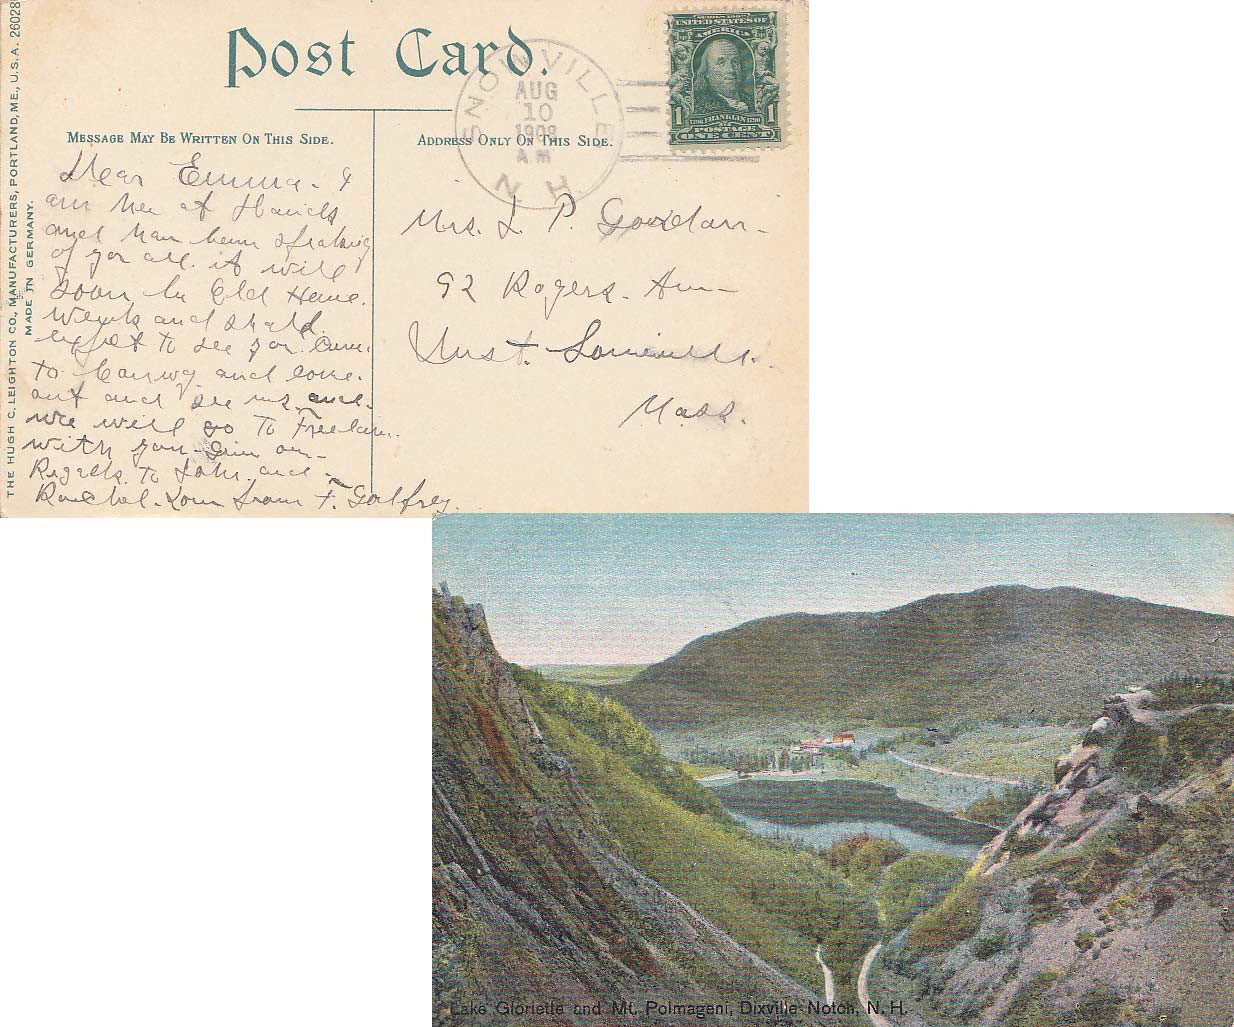 THE HUGH C. LEIGHTON CO., MANUFACTURERS, PORTLAND, ME., U.S.A. 26028
MADE IN GERMANY.
Post Card.
SNOWVILLE
AUG
10
1908
AM
N.H.
SERIES 1902
UNITED STATES OF
AMERICA
1 1
1706 FRANKLIN 1790
POSTAGE
ONE CENT
MESSAGE MAY BE WRITTEN ON THIS SIDE.
ADDRESS ONLY ON THIS SIDE.
Dear Emma. I
am here at
and have been speaking
of you all. it will
soon be Old Home.
Week and shall
expect to see you. Come
to Conway and come.
out and see us and
we will go to Freedom.
with you
Regards to John and
Rachel. Love from F. Galfrey.
Mrs. L. P. Goodan.
92 Rogers. Ave
West. Somerville.
Mass.
Lake Gloriette and Mt. Polmageni, Dixville Notch, N. H.